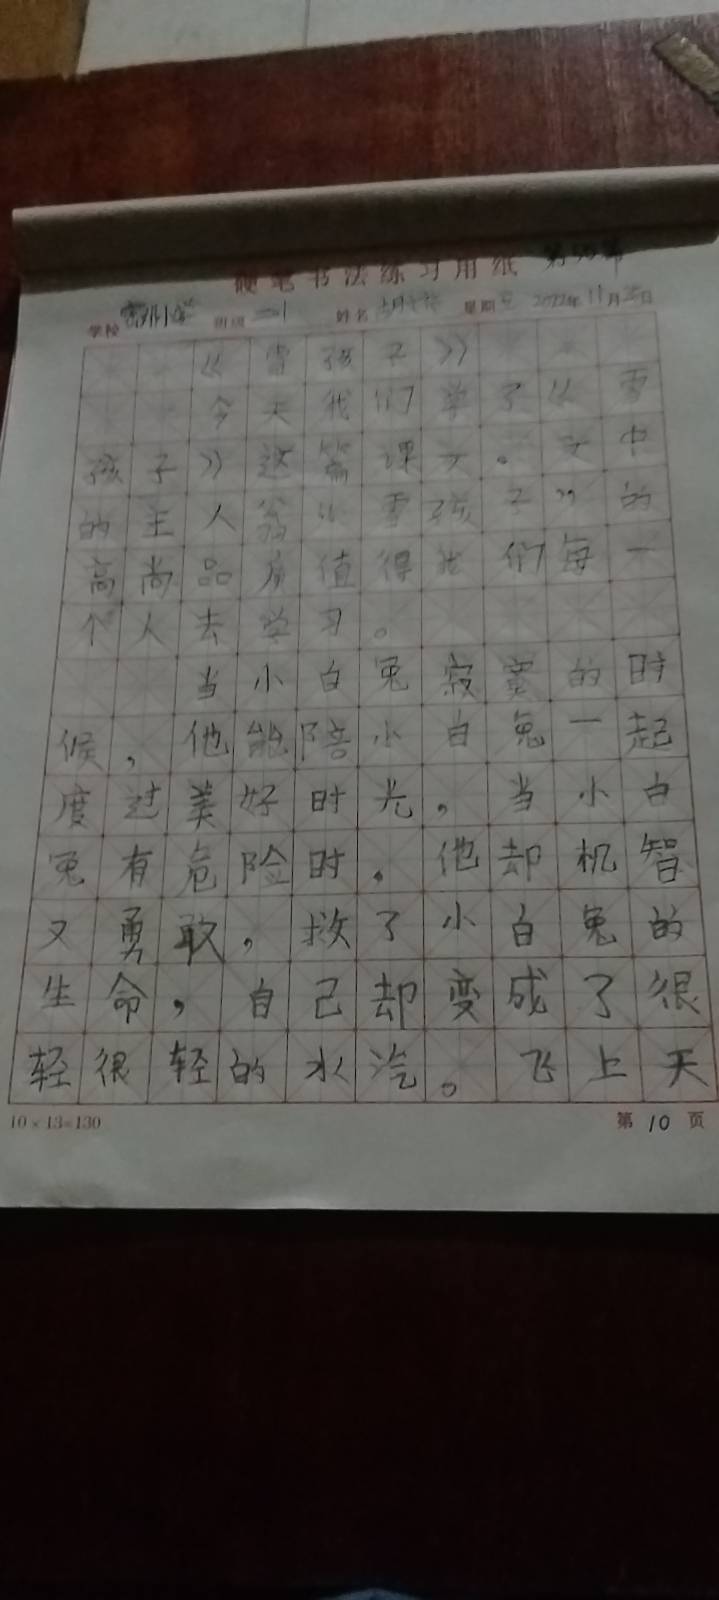 硬笔书法练习用纸
学校 班级 二1 姓名 星期五 2022年11月25日
《雪孩子》
今天我们学了《雪
孩子》这篇课文。文中
的主人翁“雪孩子”的
高尚品质值得我们每一
个人去学习。
当小白兔寂寞的时
候,他能陪小白兔一起
度过美好时光,当小白
兔有危险时,他却机智
又勇敢,救了小白兔的
生命,自己却变成了很
轻很轻的水汽。飞上天
10×13=130 第10页